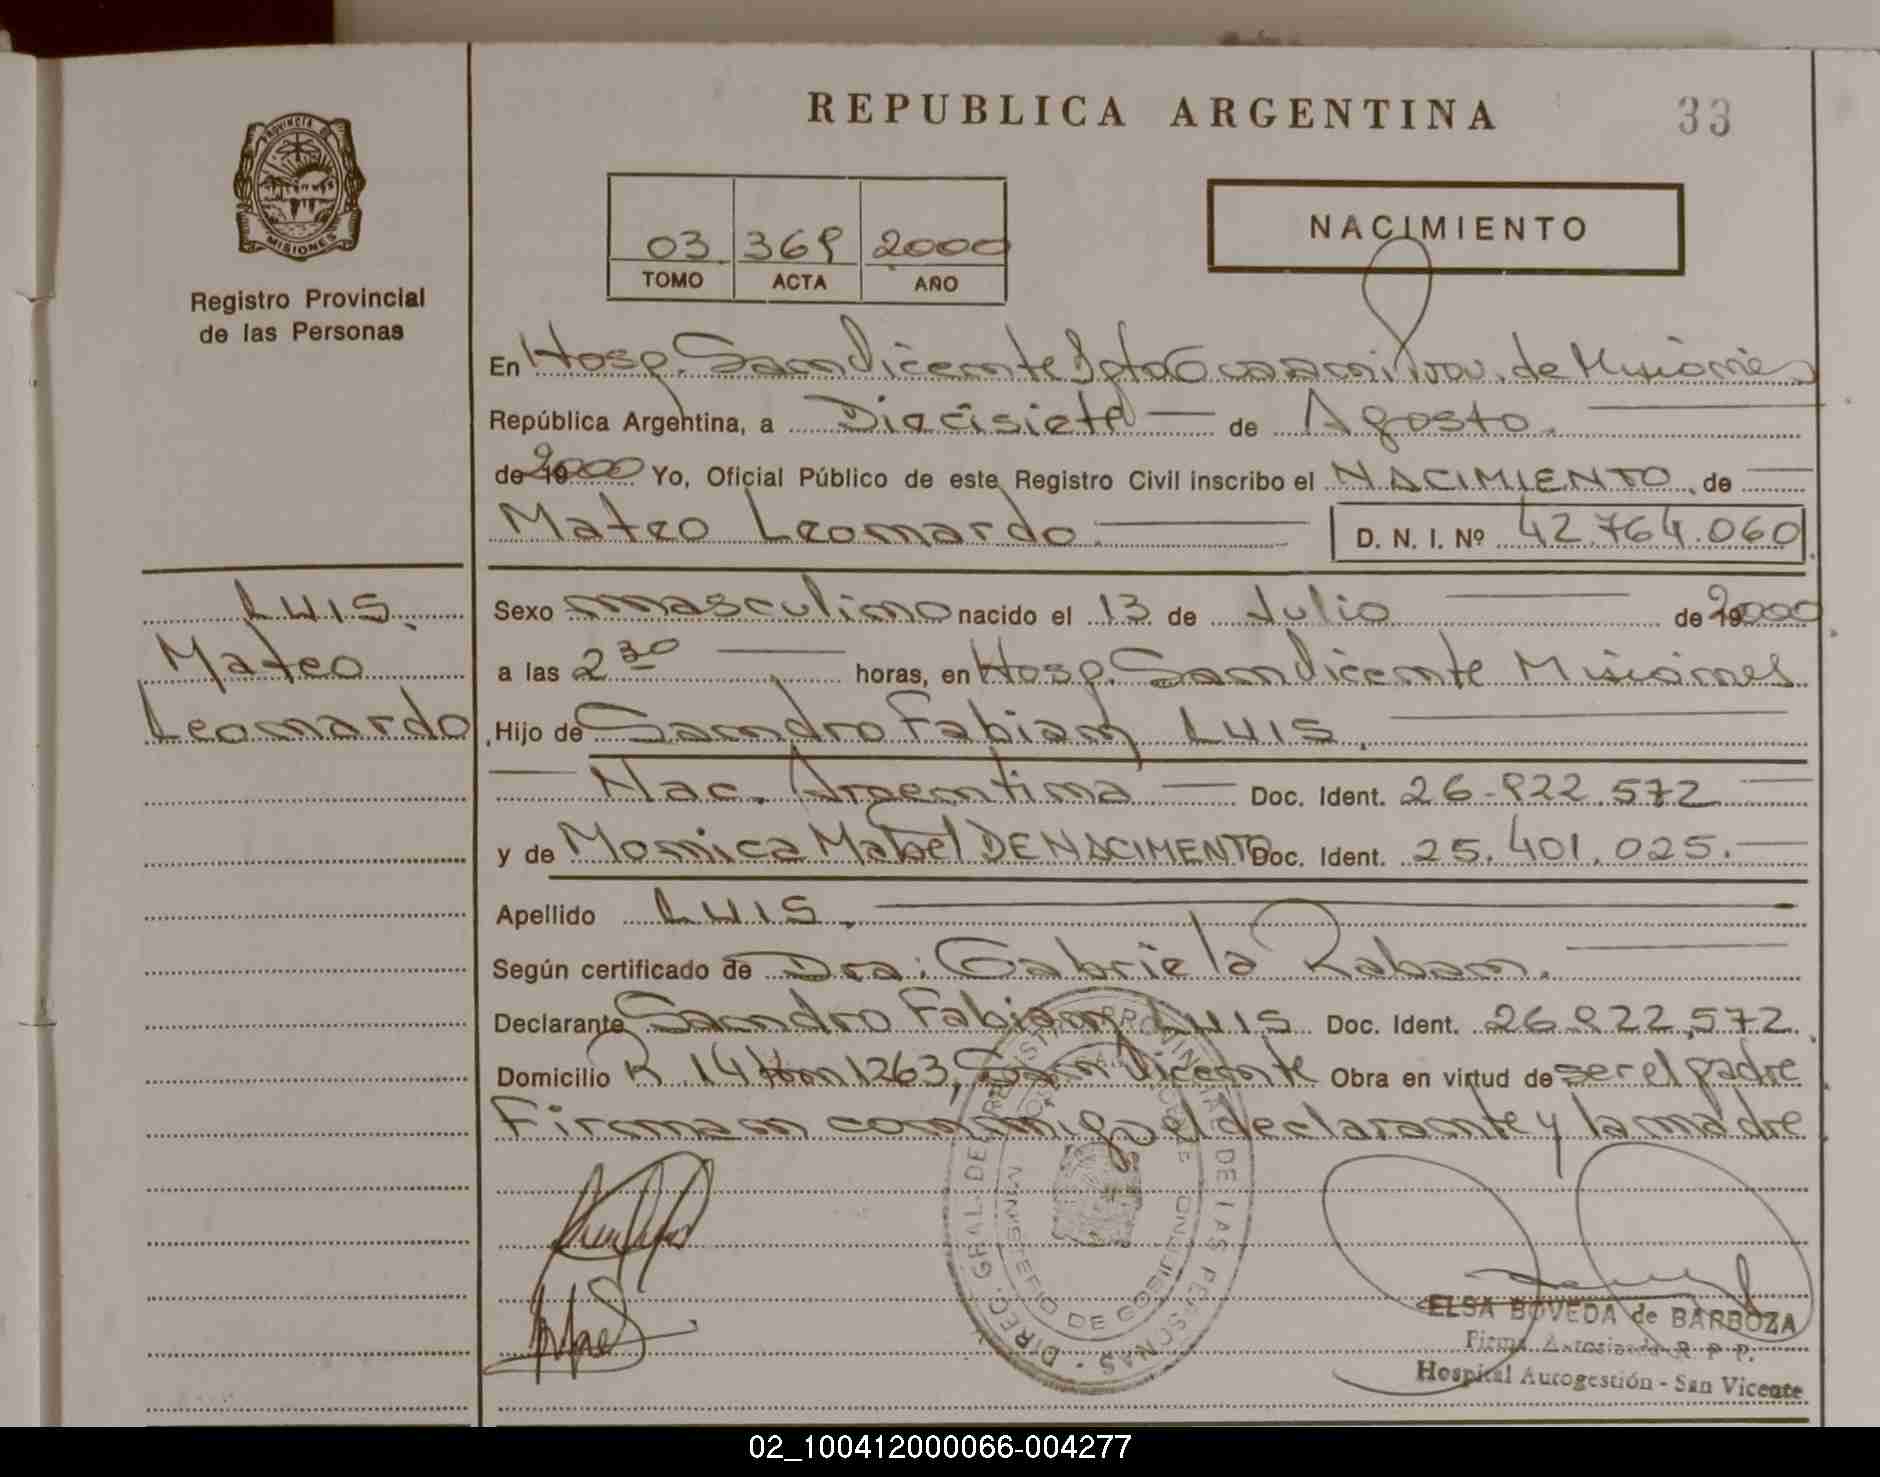 REPUBLICA ARGENTINA
33
PROVINCIA DE
MISIONES
Registro Provincial
de las Personas
03 369 2000
TOMO ACTA AÑO
NACIMIENTO
En Hosp. San Vicente Dpto Guaraní Prov. de Misiones
República Argentina, a Diecisiete de Agosto.
de 2000 Yo, Oficial Público de este Registro Civil inscribo el NACIMIENTO de
Mateo Leonardo D. N. I. Nº 42.764.060
LUIS.
Mateo
Leonardo
Sexo masculino nacido el 13 de Julio de 2000
a las 2 30 horas, en Hosp. San Vicente Misiones
Hijo de Sandro Fabian LUIS.
Nac. Argentina Doc. Ident. 26.822.572
y de Monica Mabel DE NACIMENTO Doc. Ident. 25.401.025.
Apellido LUIS.
Según certificado de Dra. Gabriela Raban.
Declarante Sandro Fabian LUIS Doc. Ident. 26.822.572.
Domicilio R 14 Km 1263, San Vicente Obra en virtud de ser el padre
Firman conmigo el declarante y la madre
DIREC. GRAL. DEL REGISTRO PROVINCIAL DE LAS PERSONAS
MINISTERIO DE GOBIERNO
ELSA BOVEDA de BARBOZA
Firma Autorizada R. P. P.
Hospital Autogestión - San Vicente
02_100412000066-004277